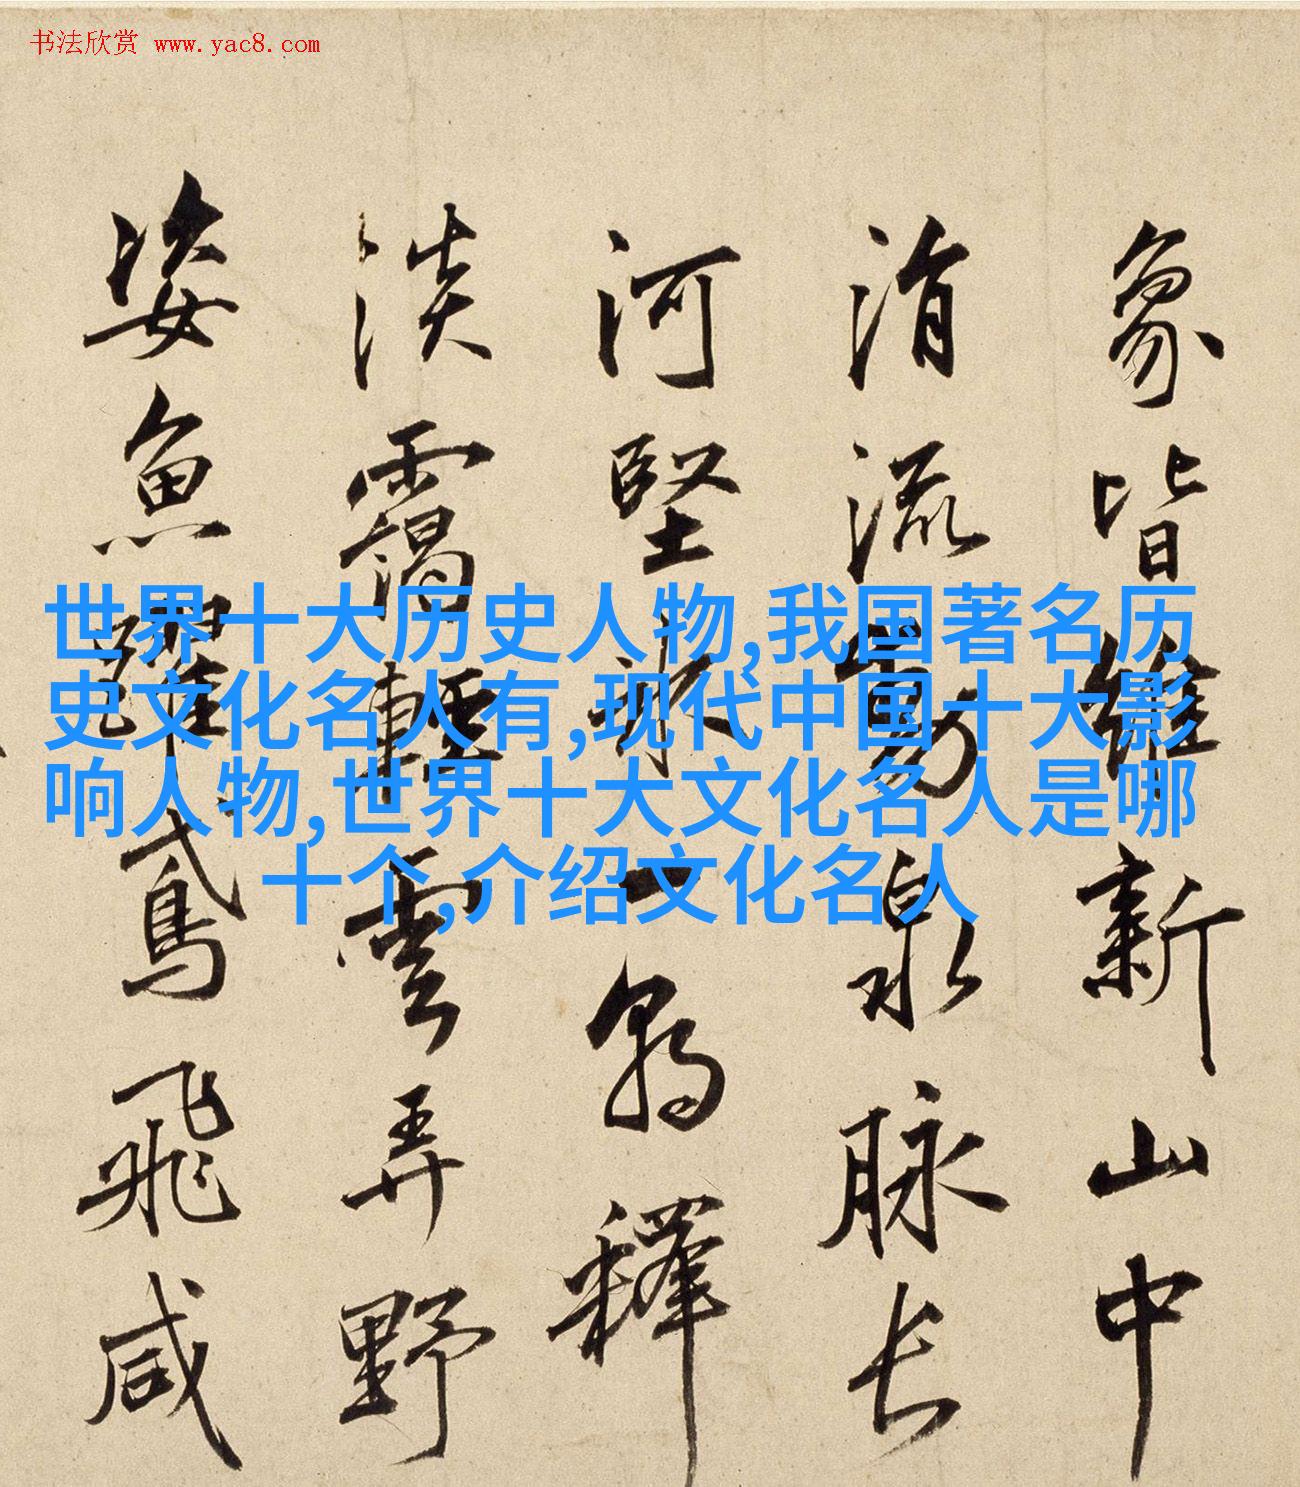 书法欣赏 www.yac8.com
象皆雖新山中
涓流動泉脉长
河堅冰一朝釋
淡靄輕雲弄野
姿魚躍鳶飛咸
世界十大历史人物,我国著名历
史文化名人有,现代中国十大影
响人物,世界十大文化名人是哪
十个,介绍文化名人